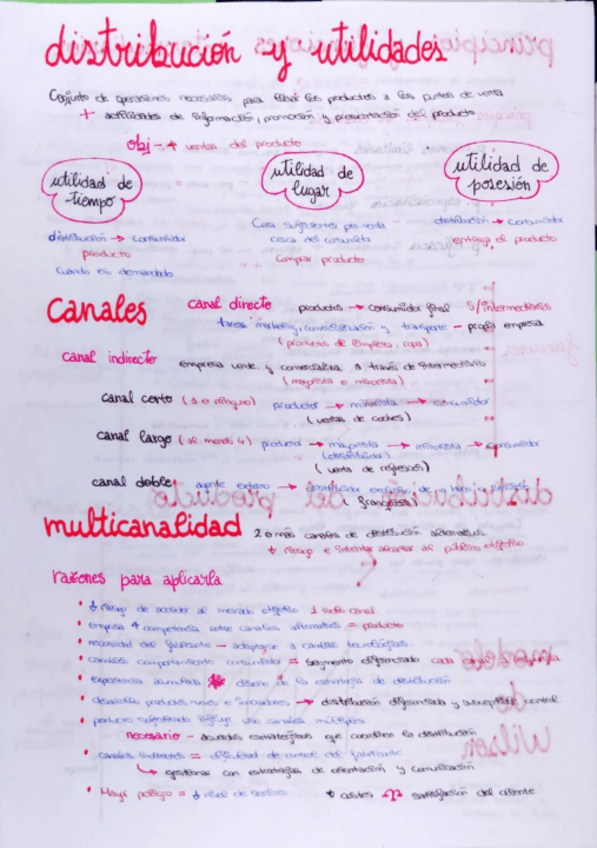 distribución y utilidades
Conjunto de operaciones necesarias para llevar los productos a los puntos de venta
+ actividades de información, promoción y presentación del producto
obj → + ventas del producto
utilidad de tiempo
utilidad de lugar
utilidad de posesión
distribución → consumidor
producto
cuando es demandado
Crea suficientes ptos venta
cerca del consumidor
comprar producto
distribución → consumidor
entrega el producto
canales
canal directo productos → consumidor final s/intermediarios
tareas marketing, comercialización y transporte – propia empresa
(productos de limpieza, ropa)
canal indirecto empresa vende y comercializa a través de intermediario
(mayorista o minorista)
canal corto (1 o ninguno) productor → minorista → consumidor
(ventas de coches)
canal largo (al menos 4) productor → mayorista → minorista → consumidor
(distribuidor)
(venta de refrescos)
canal doble: agente externo → distribuidor exclusivo de
(franquicias)
multicanalidad 2 o más canales de distribución alternativos.
riesgo e intentar abarcar al público objetivo
razones para aplicarla
• ↓ riesgo de acceder al mercado objetivo 1 solo canal
• empresa + competencia entre canales alternativos = producto
• necesidad del fabricante – adaptarse a canales tecnológicos.
• cambios comportamiento consumidor = segmento diferenciado
• experiencia acumulada diseño de la estrategia de distribución
• desarrollo productos nuevos e innovadores → distribución diferenciada y susceptible control
• producto sofisticado influye uso canales múltiples
necesario – acuerdos estratégicos que coordinen la distribución
• canales indirectos = dificultad de control del fabricante
↳ gestionar con estrategias de orientación y comunicación
• Mayor = ↓ nivel de servicio costes satisfacción del cliente